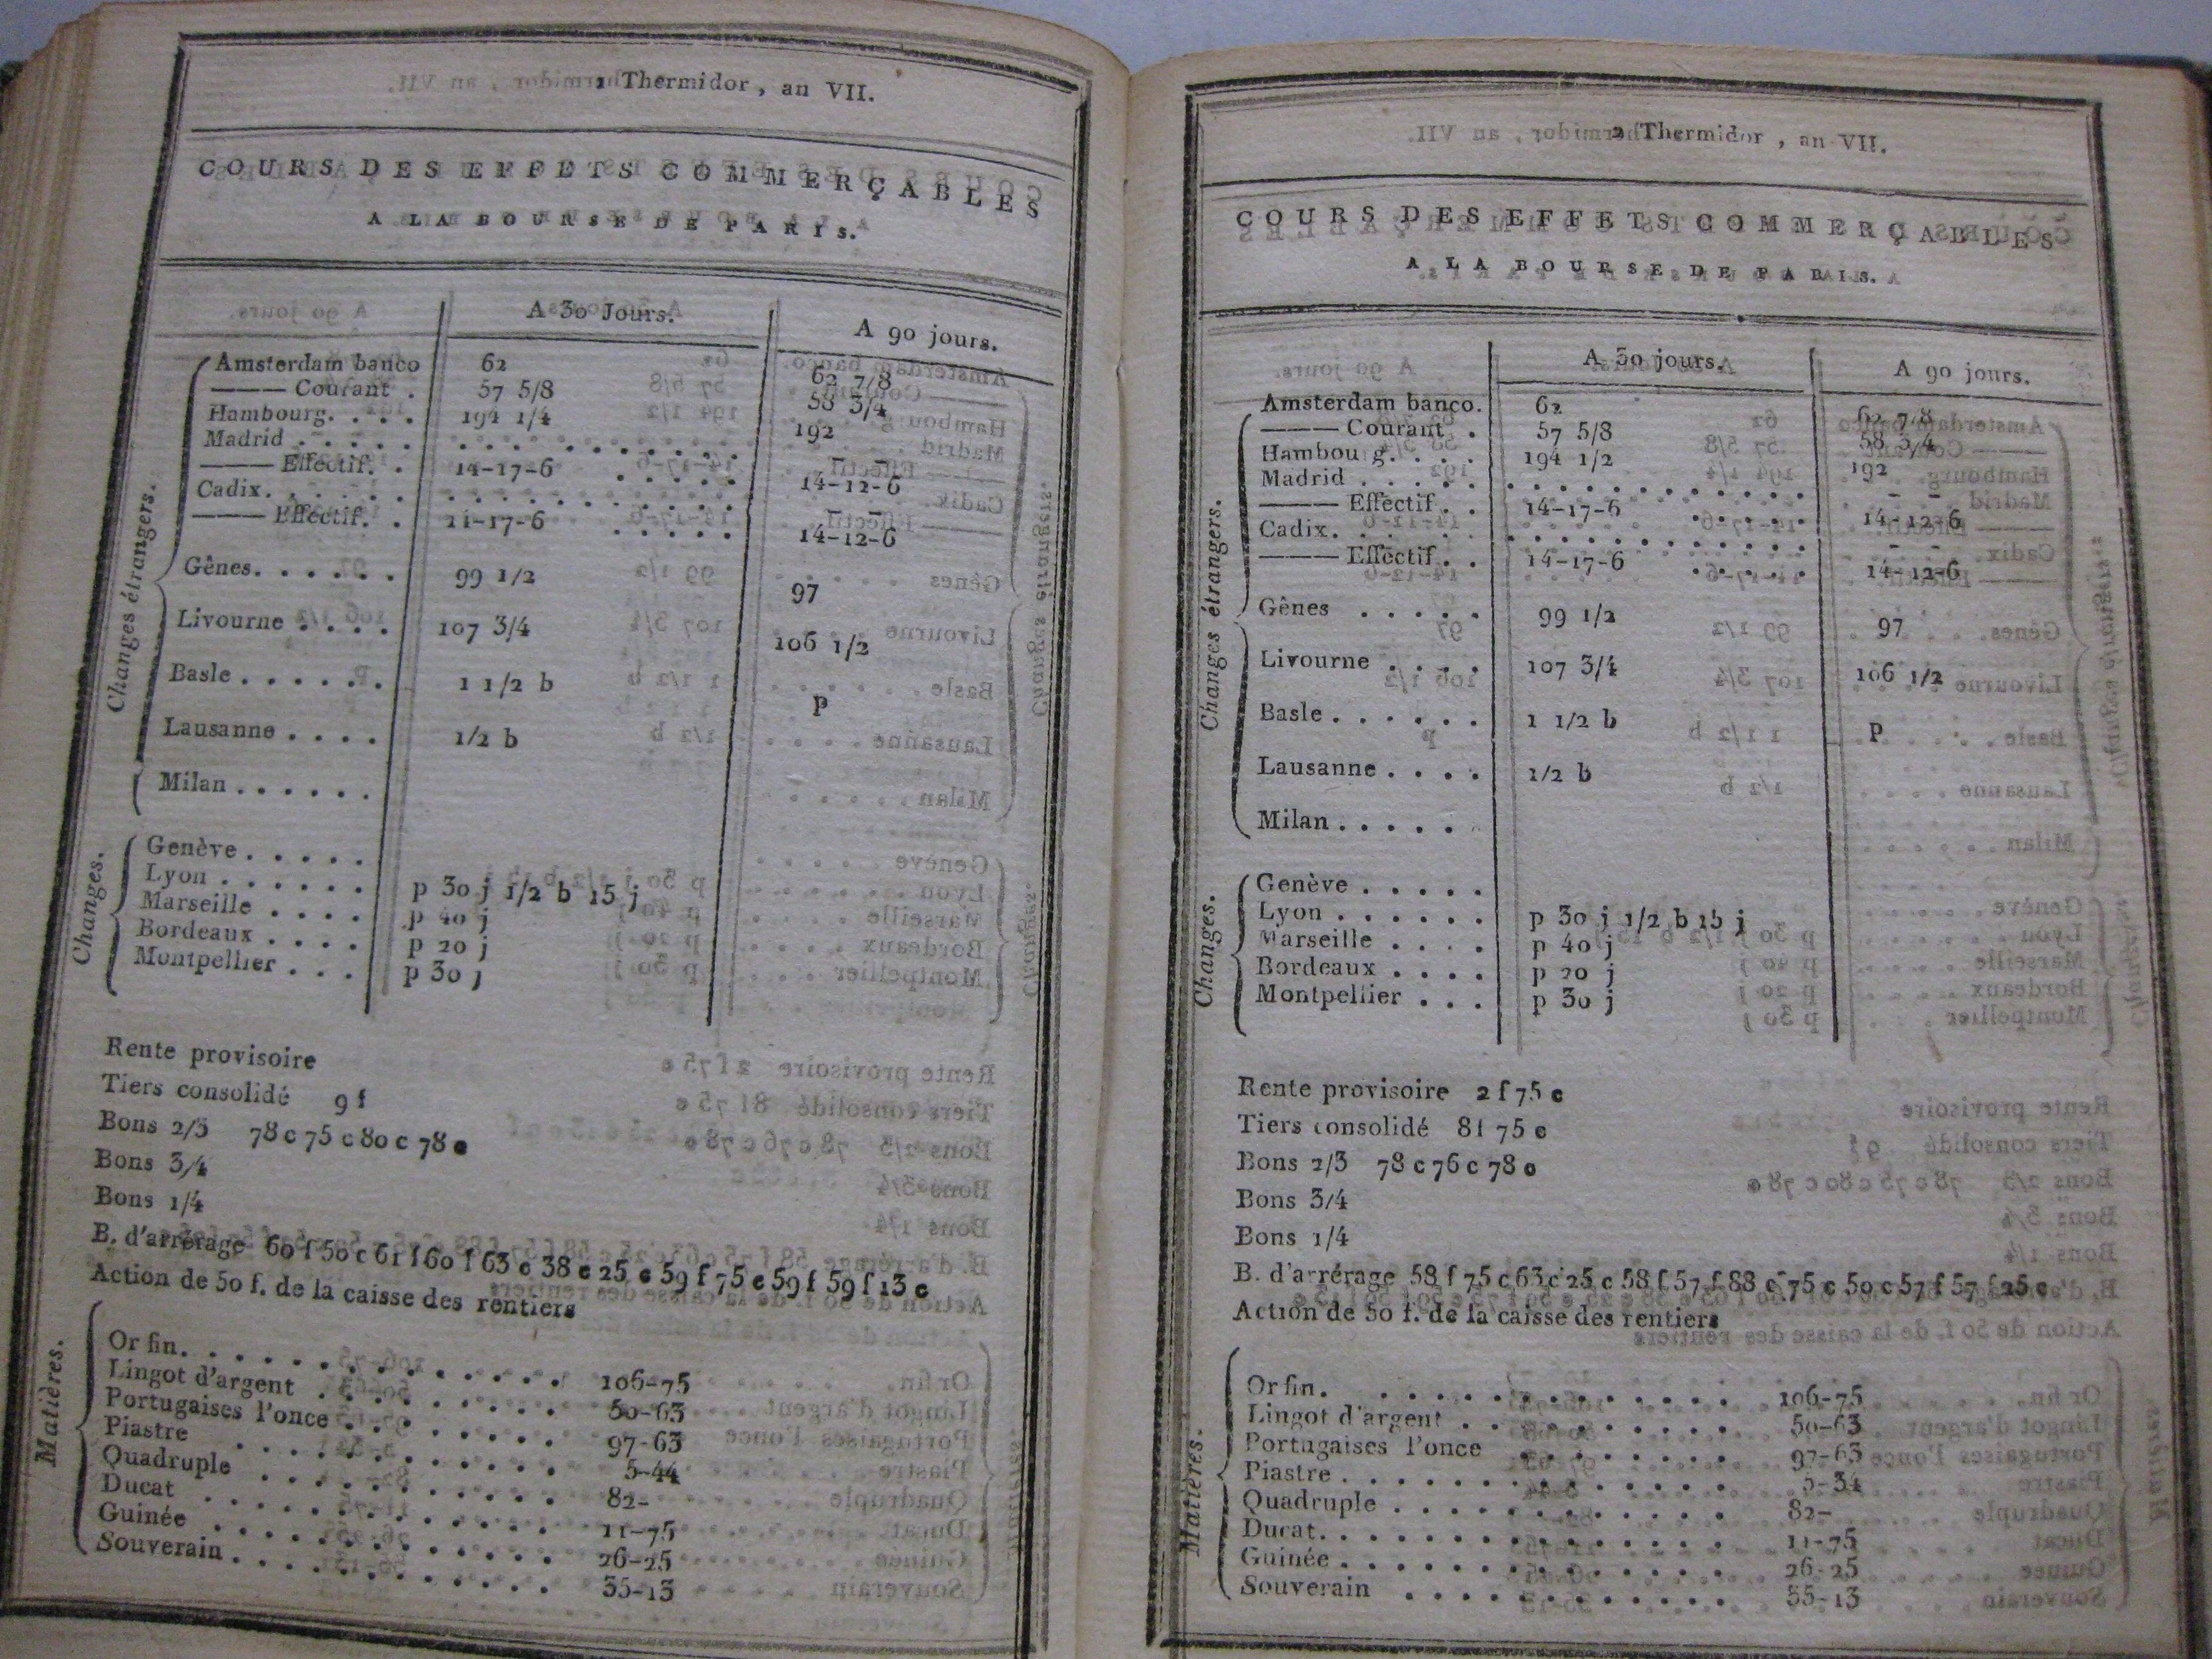 1 Thermidor, an VII.
COURS DES EFFETS COMMERÇABLES
A LA BOURSE DE PARIS.
A 30 Jours. A 90 jours.
Changes étrangers.
Amsterdam banco 62 62 7/8
——— Courant . 57 5/8 58 3/4
Hambourg. . . . 194 1/4 192
Madrid . . . . . – –
——— Effectif. . 14-17-6 14-12-6
Cadix. . . . . . – –
——— Effectif. . 11-17-6 14-12-6
Gênes. . . . . . 99 1/2 97
Livourne . . . . 107 3/4 106 1/2
Basle . . . . . . 1 1/2 b P
Lausanne . . . . 1/2 b
Milan . . . . . .
Changes.
Genève . . . . .
Lyon . . . . . . p 30 j 1/2 b 15 j
Marseille . . . . p 40 j
Bordeaux . . . . p 20 j
Montpellier . . . p 30 j
Rente provisoire
Tiers consolidé 9 f
Bons 2/3 78 c 75 c 80 c 78 c
Bons 3/4
Bons 1/4
B. d'arrérage 60 f 50 c 61 f 60 f 63 c 38 c 25 c 59 f 75 c 59 f 59 f 13 c
Action de 50 f. de la caisse des rentiers
Matières.
Or fin. . . . . . . . . . . . . . 106-75
Lingot d'argent . . . . . . . . . 50-63
Portugaises l'once . . . . . . . . 97-63
Piastre . . . . . . . . . . . . 5-44
Quadruple . . . . . . . . . . . 82-
Ducat . . . . . . . . . . . . . 11-75
Guinée . . . . . . . . . . . . . 26-25
Souverain . . . . . . . . . . . . 35-13
2 Thermidor, an VII.
COURS DES EFFETS COMMERÇABLES
A LA BOURSE DE PARIS.
A 30 jours. A 90 jours.
Changes étrangers.
Amsterdam banco. 62 62 7/8
——— Courant . 57 5/8 58 3/4
Hambourg. . . . 194 1/2 192
Madrid . . . . . – –
——— Effectif . . 14-17-6 14-12-6
Cadix. . . . . . – –
——— Effectif . . 14-17-6 14-12-6
Gênes . . . . . 99 1/2 97
Livourne . . . . 107 3/4 106 1/2
Basle . . . . . . 1 1/2 b P
Lausanne . . . . 1/2 b
Milan . . . . .
Changes.
Genève . . . . .
Lyon . . . . . . p 30 j 1/2 b 15 j
Marseille . . . . p 40 j
Bordeaux . . . . p 20 j
Montpellier . . . p 30 j
Rente provisoire 2 f 75 c
Tiers consolidé 8 f 75 c
Bons 2/3 78 c 76 c 78 c
Bons 3/4
Bons 1/4
B. d'arrérage 58 f 75 c 63 c 25 c 58 f 57 f 88 c 75 c 50 c 57 f 57 f 25 c
Action de 50 f. de la caisse des rentiers
Matières.
Or fin. . . . . . . . . . . . . . 106-75
Lingot d'argent . . . . . . . . . . 50-63
Portugaises l'once . . . . . . . . 97-63
Piastre . . . . . . . . . . . . . 5-34
Quadruple . . . . . . . . . . . . 82-
Ducat. . . . . . . . . . . . . . 11-75
Guinée . . . . . . . . . . . . . 26-25
Souverain . . . . . . . . . . . . 35-13